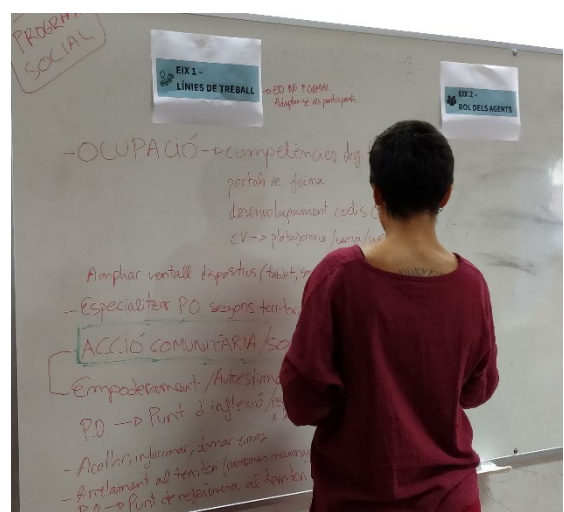 PROGRAMA
SOCIAL
EIX 1 -
LÍNIES DE TREBALL
→ ED NO FORMAL
Adaptar-se als participants
EIX 2 -
ROL DELS AGENTS
- OCUPACIÓ → competències dig
portals de feina
desenvolupament codis
CV → plataforma /
Ampliar ventall dispositius (tablet,
- Especialitzar P.O segons territori
ACCIÓ COMUNITÀRIA / SO
Empoderament / Autoestima
P.O → Punt d'inflexió /
- Acollir, informar, donar eines
- Arrelament al territori / persones
P.O → Punt de referència al territori